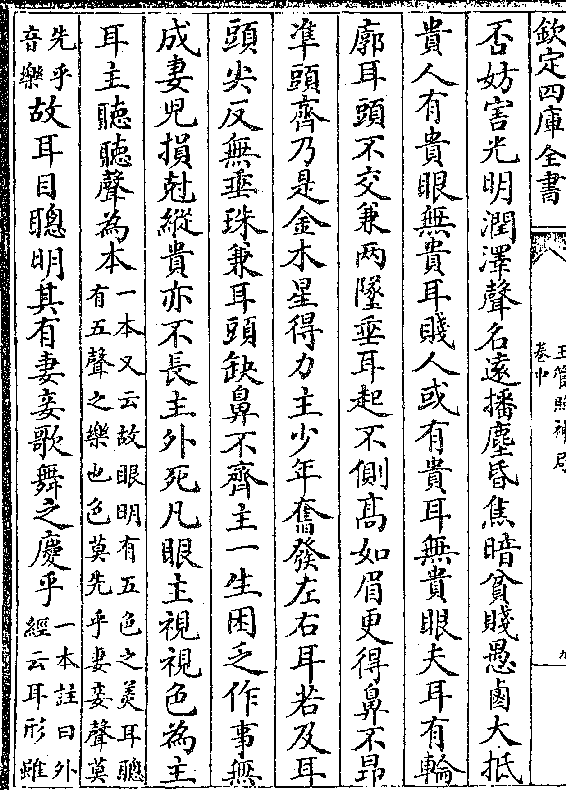 欽定四庫全書
玉管照神局
卷中
九
否妨害光明潤澤聲名遠播塵昏焦暗貧賤愚鹵大抵
貴人有貴眼無貴耳賤人或有貴耳無貴眼夫耳有輪
廓耳頭不交兼兩墜垂耳起不側高如眉更得鼻不昂
準頭齊乃是金木星得力主少年奮發左右耳若及耳
頭尖反無垂珠兼耳頭缺鼻不齊主一生困乏作事無
成妻兒損尅縱貴亦不長主外死凡眼主視視色為主
耳主聽聽聲為本
一本又云故眼明有五色之美耳聰
有五聲之樂也色莫先乎妻妾聲莫
先乎
音樂
故耳目聰明其有妻妾歌舞之慶乎
一本註曰外
經云耳形雖